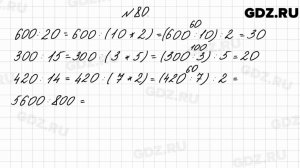 GDZ.RU
№80
60
600:20 = 600 : (10 * 2) = (600 : 10) : 2 = 30
100
300 : 15 = 300 : (3 * 5) = (300 : 3) : 5 = 20
60
420 : 14 = 420 : (7 * 2) = (420 : 7) : 2 =
5600 800 =